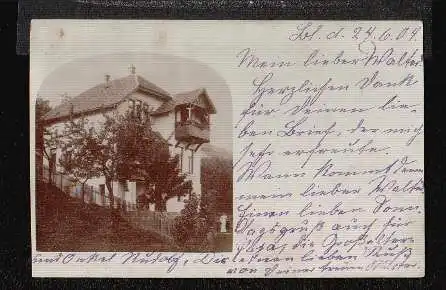 Bl. d. 24.6.04.
Mein lieber Walter.
Herzlichen Dank
für Deinen lie-
ben Brief, der mich
sehr erfreute.
Wann kommst denn
mein lieber Walter
Einen lieben Sonn
tagsgruß auch für
die Großeltern
und Onkel Rudolf, Dir einen lieben Kuß
von Deiner treuen